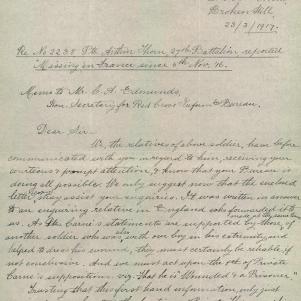 Broken Hill,
23/3/1917.
Re No 2238 Pte Arthur Thorn, 27th Battalion reported
"Missing in France since 5th Nov. '16.
Memo to Mr. C. A. Edmunds,
Hon. Secretary for Red Cross Inform'n Bureau.
Dear Sir—
We, the relatives of above soldier, have before
communicated with you in regard to him, receiving your
courteous & prompt attention, & know that your Bureau is
doing all possible. We only suggest now that the enclosed
letter may assist your enquiries. It was written in answer
to an enquiring relative in England who forwarded it to
us. A Pte Carne's statements are supported by those of
another soldier who was also with our boy in his extremity, and
helped to dress his wound, they must certainly be reliable, if
not conclusive. And we must act upon the 1st of Private
Carne's suppositions. viz. That he is "Wounded & a Prisoner"
Trusting that this first hand information, only just